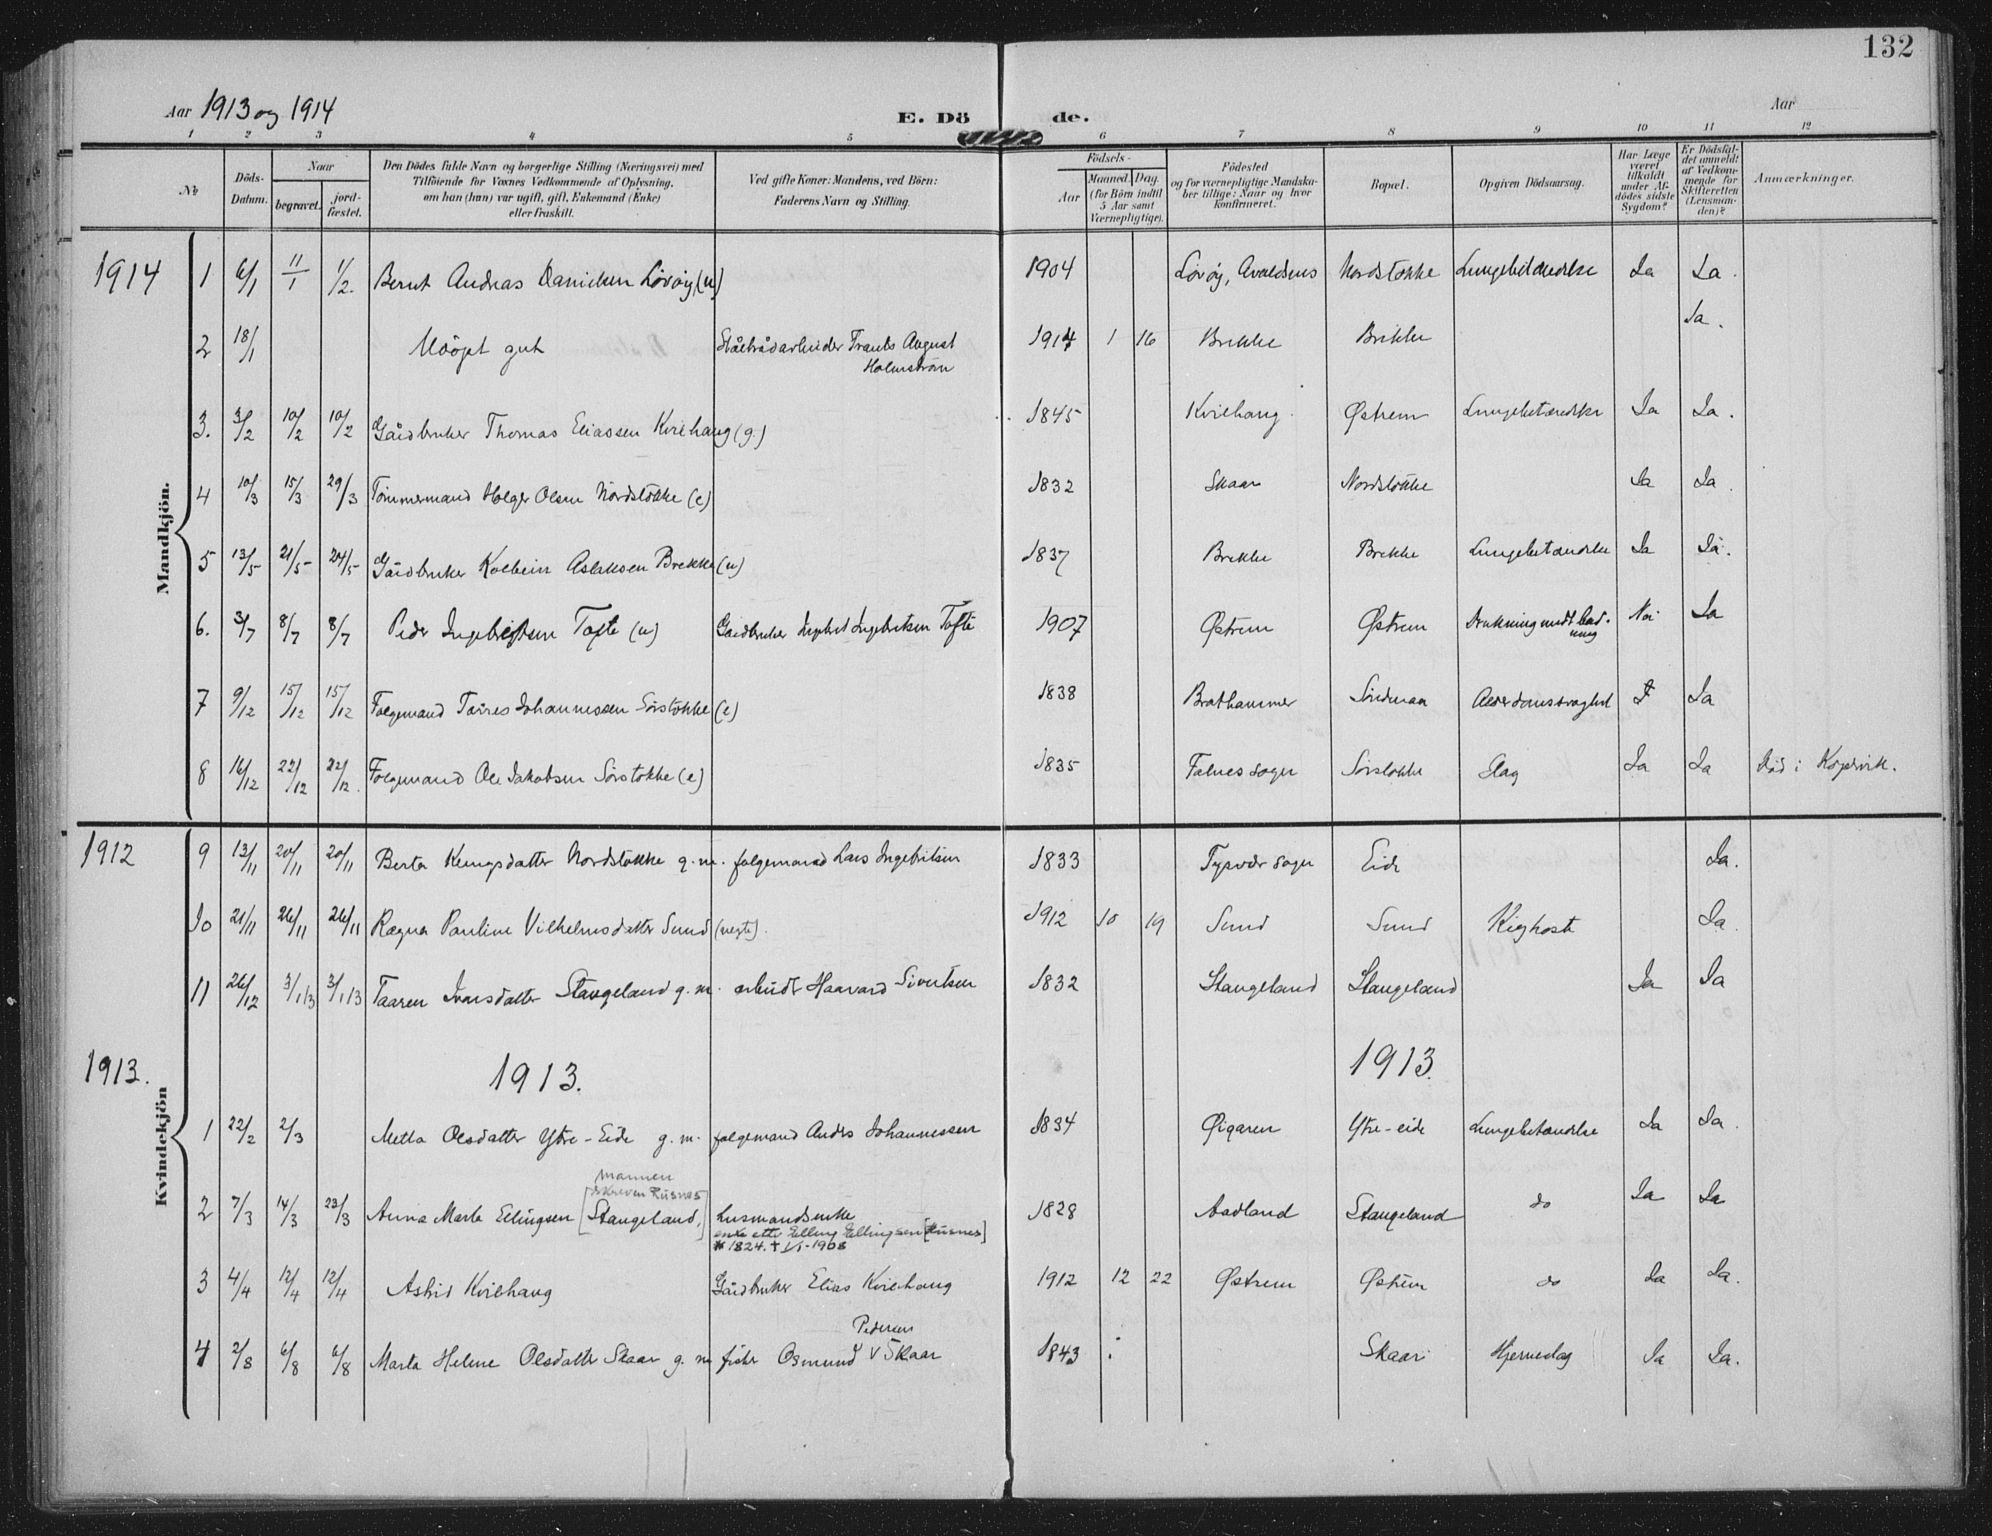 132
Aar 1913 og 1914 E. Dö de. Aar
1 2 3 4 5 6 7 8 9 10 11 12
№
Döds-
Datum.
Naar
begravet.
jord-
fæstet.
Den Dödes fulde Navn og borgerlige Stilling (Næringsvei) med
Tilföiende for Voxnes Vedkommende af Oplysning,
om han (hun) var ugift, gift, Enkemand (Enke)
eller fraskilt.
Ved gifte Koner: Mandens, ved Börn:
Faderens Navn og Stilling.
Födsels-
Aar
Maaned. Dag.
(for Börn indtil
5 Aar samt
Værnepligtige).
Födested
og for værnepligtige Mandska-
ber tillige: Naar og hvor
konfirmeret.
Bopæl.
Opgiven Dödsaarsag.
Har Læge
været
tilkaldt
under Af-
dödes sidste
Sygdom?
Er Dödsfal-
det anmeldt
af Vedkom-
mende for
Skifteretten
(Lensman-
den)?
Anmærkninger.
Mandkjön.
1914 1 6/1 11/1 1/2. Bernt Andreas Danielsen Lövöy (u) 1904 Lövöy, Avaldsnes Nordstokke Lungebetændelse Ja Ja.
2 18/1 Udöpt gut Ståltrådarbeider Frants August 1914 1 16 Brekke Brekke Ja.
Holmström
3. 3/2 10/2 10/2 Gårdbruker Thomas Eliassen Kvilhaug (g.) 1845 Kvilhaug. Østrem Lungebetændelse Ja Ja.
4 10/3 15/3 29/3 Tömmermand Holger Olsen Nordstokke (e) 1832 Skaar Nordstokke Ja Ja.
5 13/5 21/5 24/5 Gårdbruker Kolbein Aslaksen Brekke (u) 1837 Brekke Brekke Lungebetændelse Ja Ja.
6. 3/7 8/7 8/7 Peder Ingebrigtsen Tofte (u) Gårdbruker Ingebret Ingebretsen Tofte 1907 Østrem Østrem Drukning under bad- Nei Ja
ning
7 9/12 15/12 15/12 Folgemand Tórres Johannessen Sörstokke (e) 1838 Brathammer Söndenaa Alderdomssvaghet Ja
8 16/12 22/12 22/12. Folgemand Ole Jakobsen Sörstokke (e) 1835 Falnes sogn Sörstokke Slag Ja Ja Död i Kopervik.
Kvindekjön
1912 9 13/11 20/11 20/11 Berta Nordstokke g.m. folgemand Lars Ingebritsen 1833 Tysvær sogn Eide Ja.
10 21/11 26/11 26/11 Ragna Pauline Vilhelmsdatter Sund (uegte). 1912 10 19 Sund Sund Kighoste Ja.
11 26/12 3/1 13 3/1 13 Taaren Ivarsdatter Stangeland g.m. arbeider Haavard Sivertsen 1832 Stangeland Stangeland Ja Ja
1913. 1913. 1913.
1 22/2 2/3 Metta Olsdatter Ytre-Eide g.m. folgemand Anders Johannessen 1834 Øigaren Ytre-eide Lungebetændelse Ja Ja.
mannen
skreven Risnes
2 7/3 14/3 23/3 Anna Marta Ellingsen [Stangeland,] Husmandsenke 1828 Aadland Stangeland do Ja Ja
enke etter Elling Ellingsen [Risnes]
* 1824. † 1/1-1908
3 4/4 12/4 12/4 Astrid Kvilhaug Gårdbruker Elias Kvilhaug 1912 12 22 Østrem Østrem do Ja Ja.
Pedersen
4 2/8 6/8 6/8 Marta Helene Olsdatter Skaar g.m fisker Osmund V Skaar 1843 Skaar Hjerneslag Ja Ja.